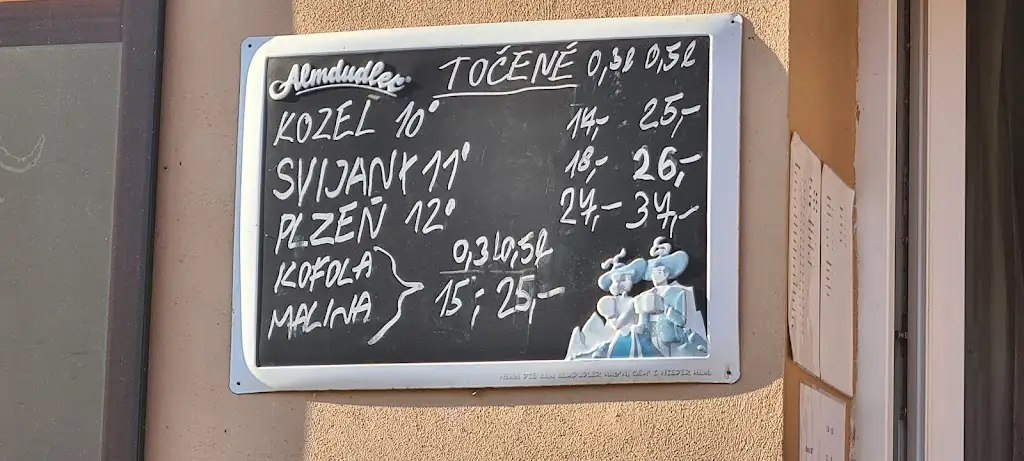 Almdudler
TOČENÉ 0,3l 0,5l
KOZEL 10° 14,- 25,-
SVIJANY 11° 18,- 26,-
PLZEŇ 12° 27,- 37,-
0,3l 0,5l
KOFOLA
MALINA 15,- 25,-